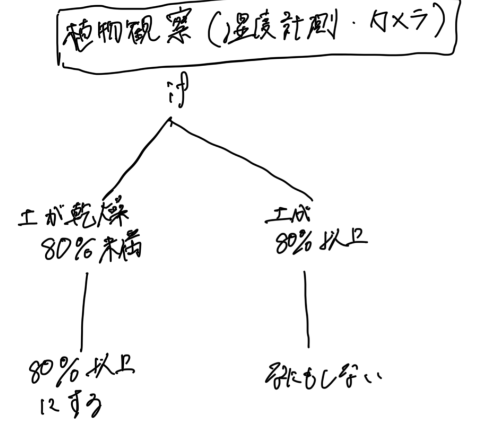 植物観察(湿度計測・カメラ)
if
土が乾燥
80%未満
土が
80%以上
80%以上
にする
なにもしない